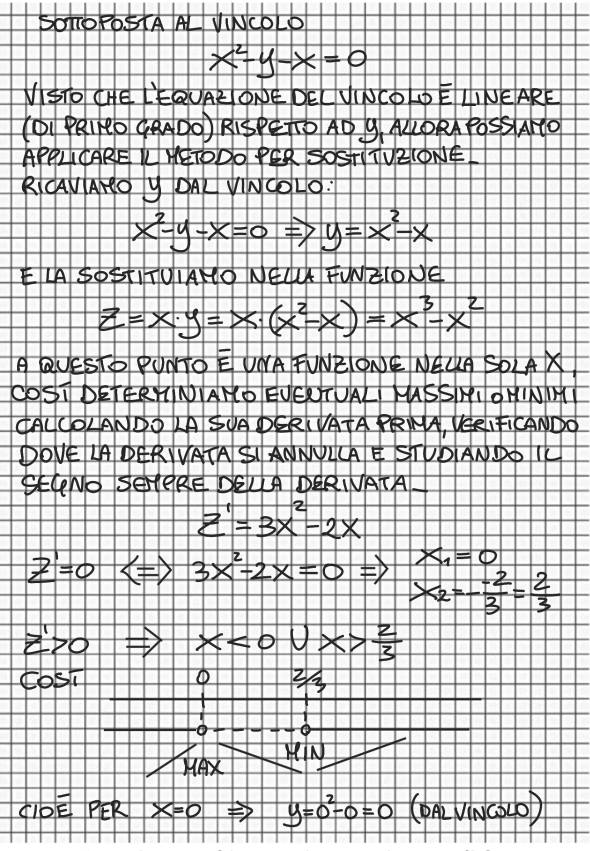 SOTTOPOSTA AL VINCOLO
x²-y-x=0
VISTO CHE L'EQUAZIONE DEL VINCOLO È LINEARE
(DI PRIMO GRADO) RISPETTO AD y, ALLORA POSSIAMO
APPLICARE IL METODO PER SOSTITUZIONE_
RICAVIAMO y DAL VINCOLO:
x²-y-x=0 => y=x²-x
E LA SOSTITUIAMO NELLA FUNZIONE
Z=x·y=x·(x²-x)=x³-x²
A QUESTO PUNTO È UNA FUNZIONE NELLA SOLA X,
COSÌ DETERMINIAMO EVENTUALI MASSIMI O MINIMI
CALCOLANDO LA SUA DERIVATA PRIMA, VERIFICANDO
DOVE LA DERIVATA SI ANNULLA E STUDIANDO IL
SEGNO SEMPRE DELLA DERIVATA_
Z'=3x²-2x
Z'=0 <=> 3x²-2x=0 => x₁=0
x₂=-\frac{-2}{3}=\frac{2}{3}
Z'>0 => x<0 U x>\frac{2}{3}
COSÌ 0 2/3
MAX MIN
CIOÈ PER x=0 => y=0²-0=0 (DAL VINCOLO)